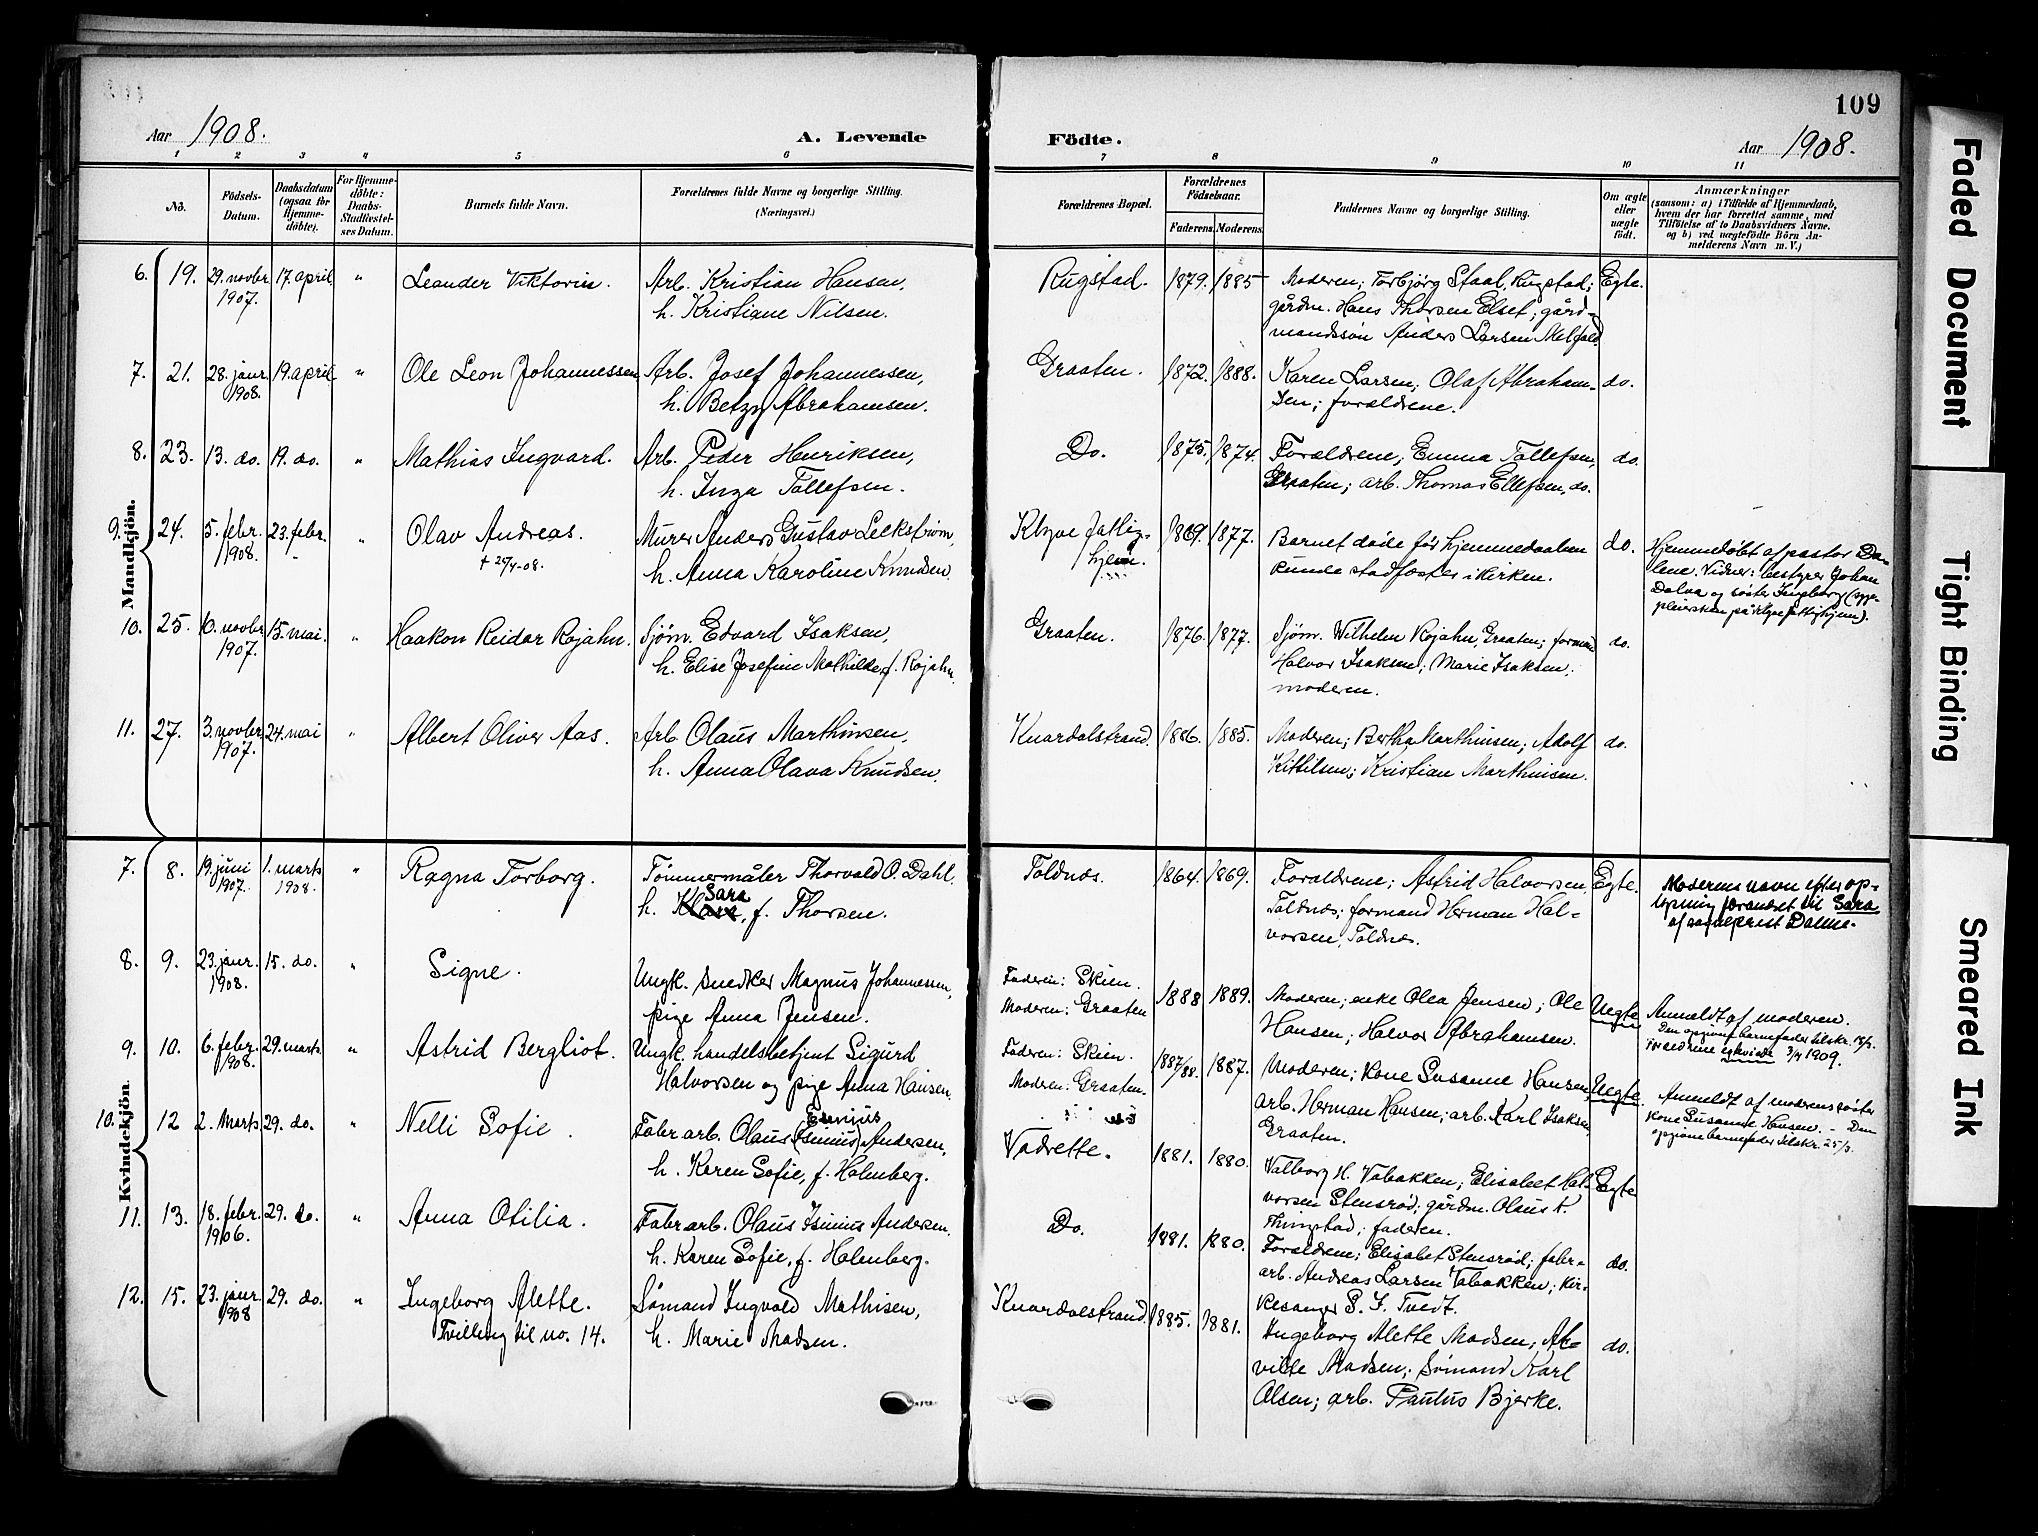 109
Aar 1908.
A. Levende Födte.
Aar 1908.
1 2 3 4 5 6 7 8 9 10 11
No.
Födsels-Datum.
Daabsdatum (ogsaa för Hjemme-döbte).
For Hjemme-döbte: Daabs-Stadfæstel-ses Datum.
Barnets fulde Navn.
Forældrenes fulde Navne og borgerlige Stilling.
(Næringsvei.)
Forældrenes Bopæl.
Forældrenes Födselsaar.
Faderens. Moderens.
Faddernes Navne og borgerlige Stilling.
Om ægte eller uægte födt.
Anmærkninger
(saasom: a) i Tilfælde af Hjemmedaab,
hvem der har forrettet samme, med
Tilföielse af to Daabsvidners Navne.
og b) ved uægtefödte Börn An-
melderens Navn m. V.)
Mandkjön.
6. 19. 29. novbr 1907. 17. april " Leander Viktorin. Arb. Kristian Hansen,
h. Kristiane Nilsen.
Rugstad. 1879. 1885 Moderen; Torbjörg Staal, Rugstad;
gårdm. Hans Thorsen Elset; gård-
mandssön Anders Larsen
Egte.
7. 21. 28. janr. 1908. 19. april " Ole Leon Johannessen Arb. Josef Johannessen,
h. Betzy Abrahamsen.
Graaten. 1872. 1888. Karen Larsen; Olaf Abraham-
sen; forældrene.
do.
8. 23. 13. do. 19. do. " Mathias Ingvard. Arb. Peder Henriksen,
h. Inga Tollefsen.
Do. 1875. 1874. Forældrene; Emma Tollefsen,
Graaten; arb. Thomas Ellefsen, do.
do.
9. 24. 5. febr. 1908. 23. febr. " Olav Andreas. Murer Anders Gustav Leckström,
h. Anna Karoline Knudsen.
Klyve fattig-
hjem.
1869. 1877. Barnet döde för hjemmedaaben
kunde stadfæstes i kirken.
do. Hjemmedöbt af pastor Da-
lene. Vidner: bestyrer Johan
Dalva og söster Ingeborg (syge-
pleierske på Klyve fattighjem).
10. 25. 10. novbr 1907. 15. mai. " Haakon Reidar Rojahn. Sjöm. Edvard Isaksen,
h. Elise Josefine Mathilde, f. Rojahn.
Graaten. 1876. 1877. Sjöm. Vilhelm Rojahn, Graaten; formand
Halvor Isaksen; Marie Isaksen;
moderen.
do.
11. 27. 3. novbr 1907. 24. mai " Albert Oliver Aas. Arb. Olaus Marthinsen,
h. Anna Olava Knudsen.
Knardalstrand. 1886. 1885. Moderen; Bertha Marthinsen; Adolf
Kittilsen; Kristian Marthinsen.
do.
Kvindekjön.
7. 8. 19. juni 1907. 1. marts 1908. " Ragna Torborg. Tömmermåler Thorvald O. Dahl.
Sara
h. f. Thorsen.
Toldnæs. 1864. 1869. Forældrene; Astrid Halvorsen,
Toldnæs; formand Herman Hal-
vorsen, Toldnæs.
Egte. Moderens navn efter op-
lysning forandret til Sara
af sogneprest Dalene.
8. 9. 23. janr. 1908. 15. do. " Signe. Ungk. snedker Magnus Johannessen,
pige Anna Jensen.
Faderen: Skien.
Moderen: Graaten
1888 1889. Moderen; enke Olea Jensen; Ole
Hansen; Halvor Abrahamsen.
Uegte Anmeldt af moderen.
Den opgivne barnefader tilskr.
Forældrene egteviede 3/4 1909.
9. 10. 6. febr. 1908. 29. marts. " Astrid Bergliot. Ungk. handelsbetjent Sigurd
Halvorsen og pige Anna Hansen.
Faderen: Skien.
Moderen: Graaten.
1887/88. 1887. Moderen; kone Susanne Hansen;
arb. Herman Hansen; arb. Karl Isaksen,
Graaten.
Uegte. Anmeldt af moderens söster
kone Susanne Hansen. - Den
opgivne barnefader tilskr. 25/3.
10. 12 2. Marts 29. do. " Nelli Sofie. Fabr arb. Olaus (Isinius) Andersen,
h. Karen Sofie, f. Holmberg.
Vadrette. 1881. 1880. Valborg H. Vabakken; Elisabet Hal-
vorsen Stensröd; gårdm. Olaus K.
Thingstad; faderen.
Egte
11. 13. 18. febr. 1906. 29. do. " Anna Otilia. Fabr arb. Olaus Isinius Andersen
h. Karen Sofie, f. Holmberg.
Do. 1881. 1880. Forældrene; Elisabet Stensröd; fabr-
arb. Andreas Larsen Vabakken; kir-
kesanger S. J. Tvedt.
do.
12. 15. 23. janr. 1908 29. do. " Ingeborg Alette.
Tvilling til no. 14.
Sömand Ingvald Mathisen,
h. Marie Madsen.
Knardalstrand. 1885. 1881. Ingeborg Alette Madsen; Al-
vilte Madsen; Sömand Karl
Olsen; arb. Paulus Bjerke.
do.
Faded Document
Tight Binding
Smeared Ink